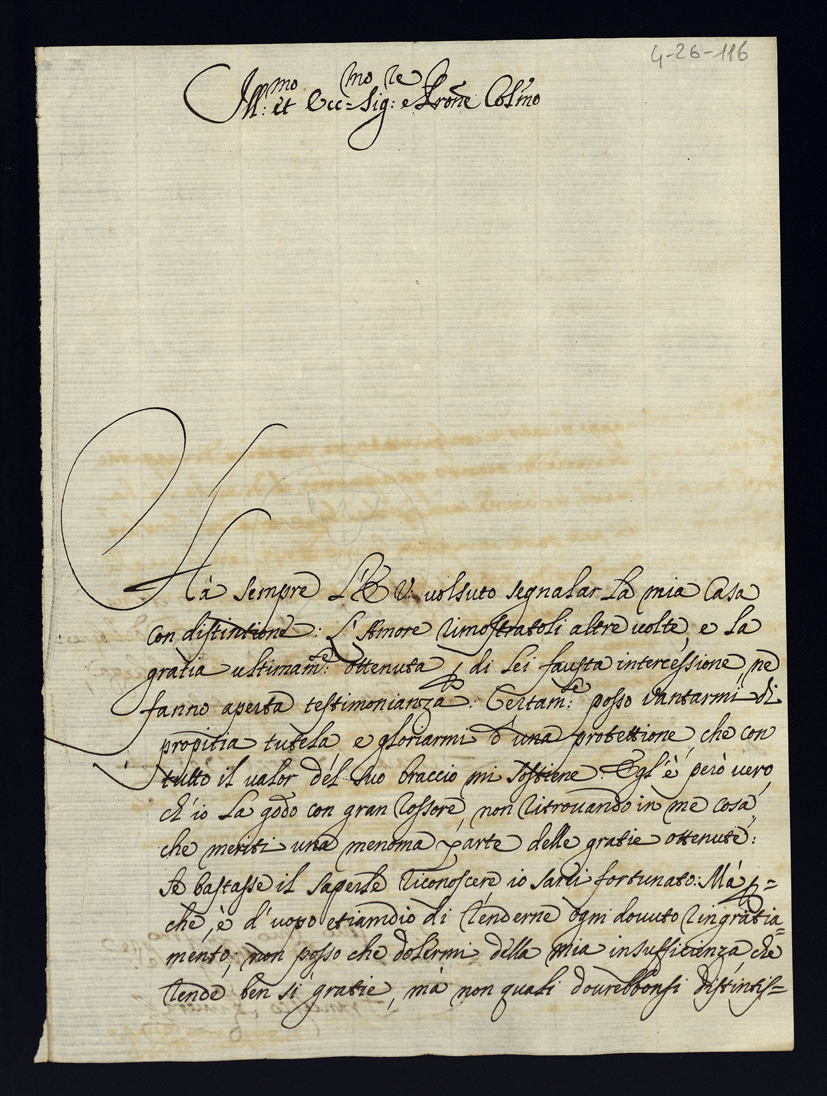 4-26-116
Ill:mo et Ecc=mo Sig:re e Prone Colmo
Hà sempre L'E V. volsuto segnalar la mia Casa
con distintione: L'Amore rimostratoli altre volte, e la
gratia ultimam:te ottenuta p di lei fausta intercessione, ne
fanno aperta testimonianza. Certam:te posso vantarmi di
propitia tutela e gloriarmi d'una protettione, che con
tutto il valor del suo braccio mi sostiene. Egl'è però vero,
ch'io la godo con gran rossore, non ritrovando in me cosa,
che meriti una menoma parte delle gratie ottenute:
Se bastasse il saperle riconoscere io sarei fortunato: Mà p=
che, è d'uopo etiamdio di renderne ogni dovuto ringratia=
mento, non posso che dolermi della mia insufficienza, che
rende ben sì gratie, mà non quali dourebbonsi distintis=